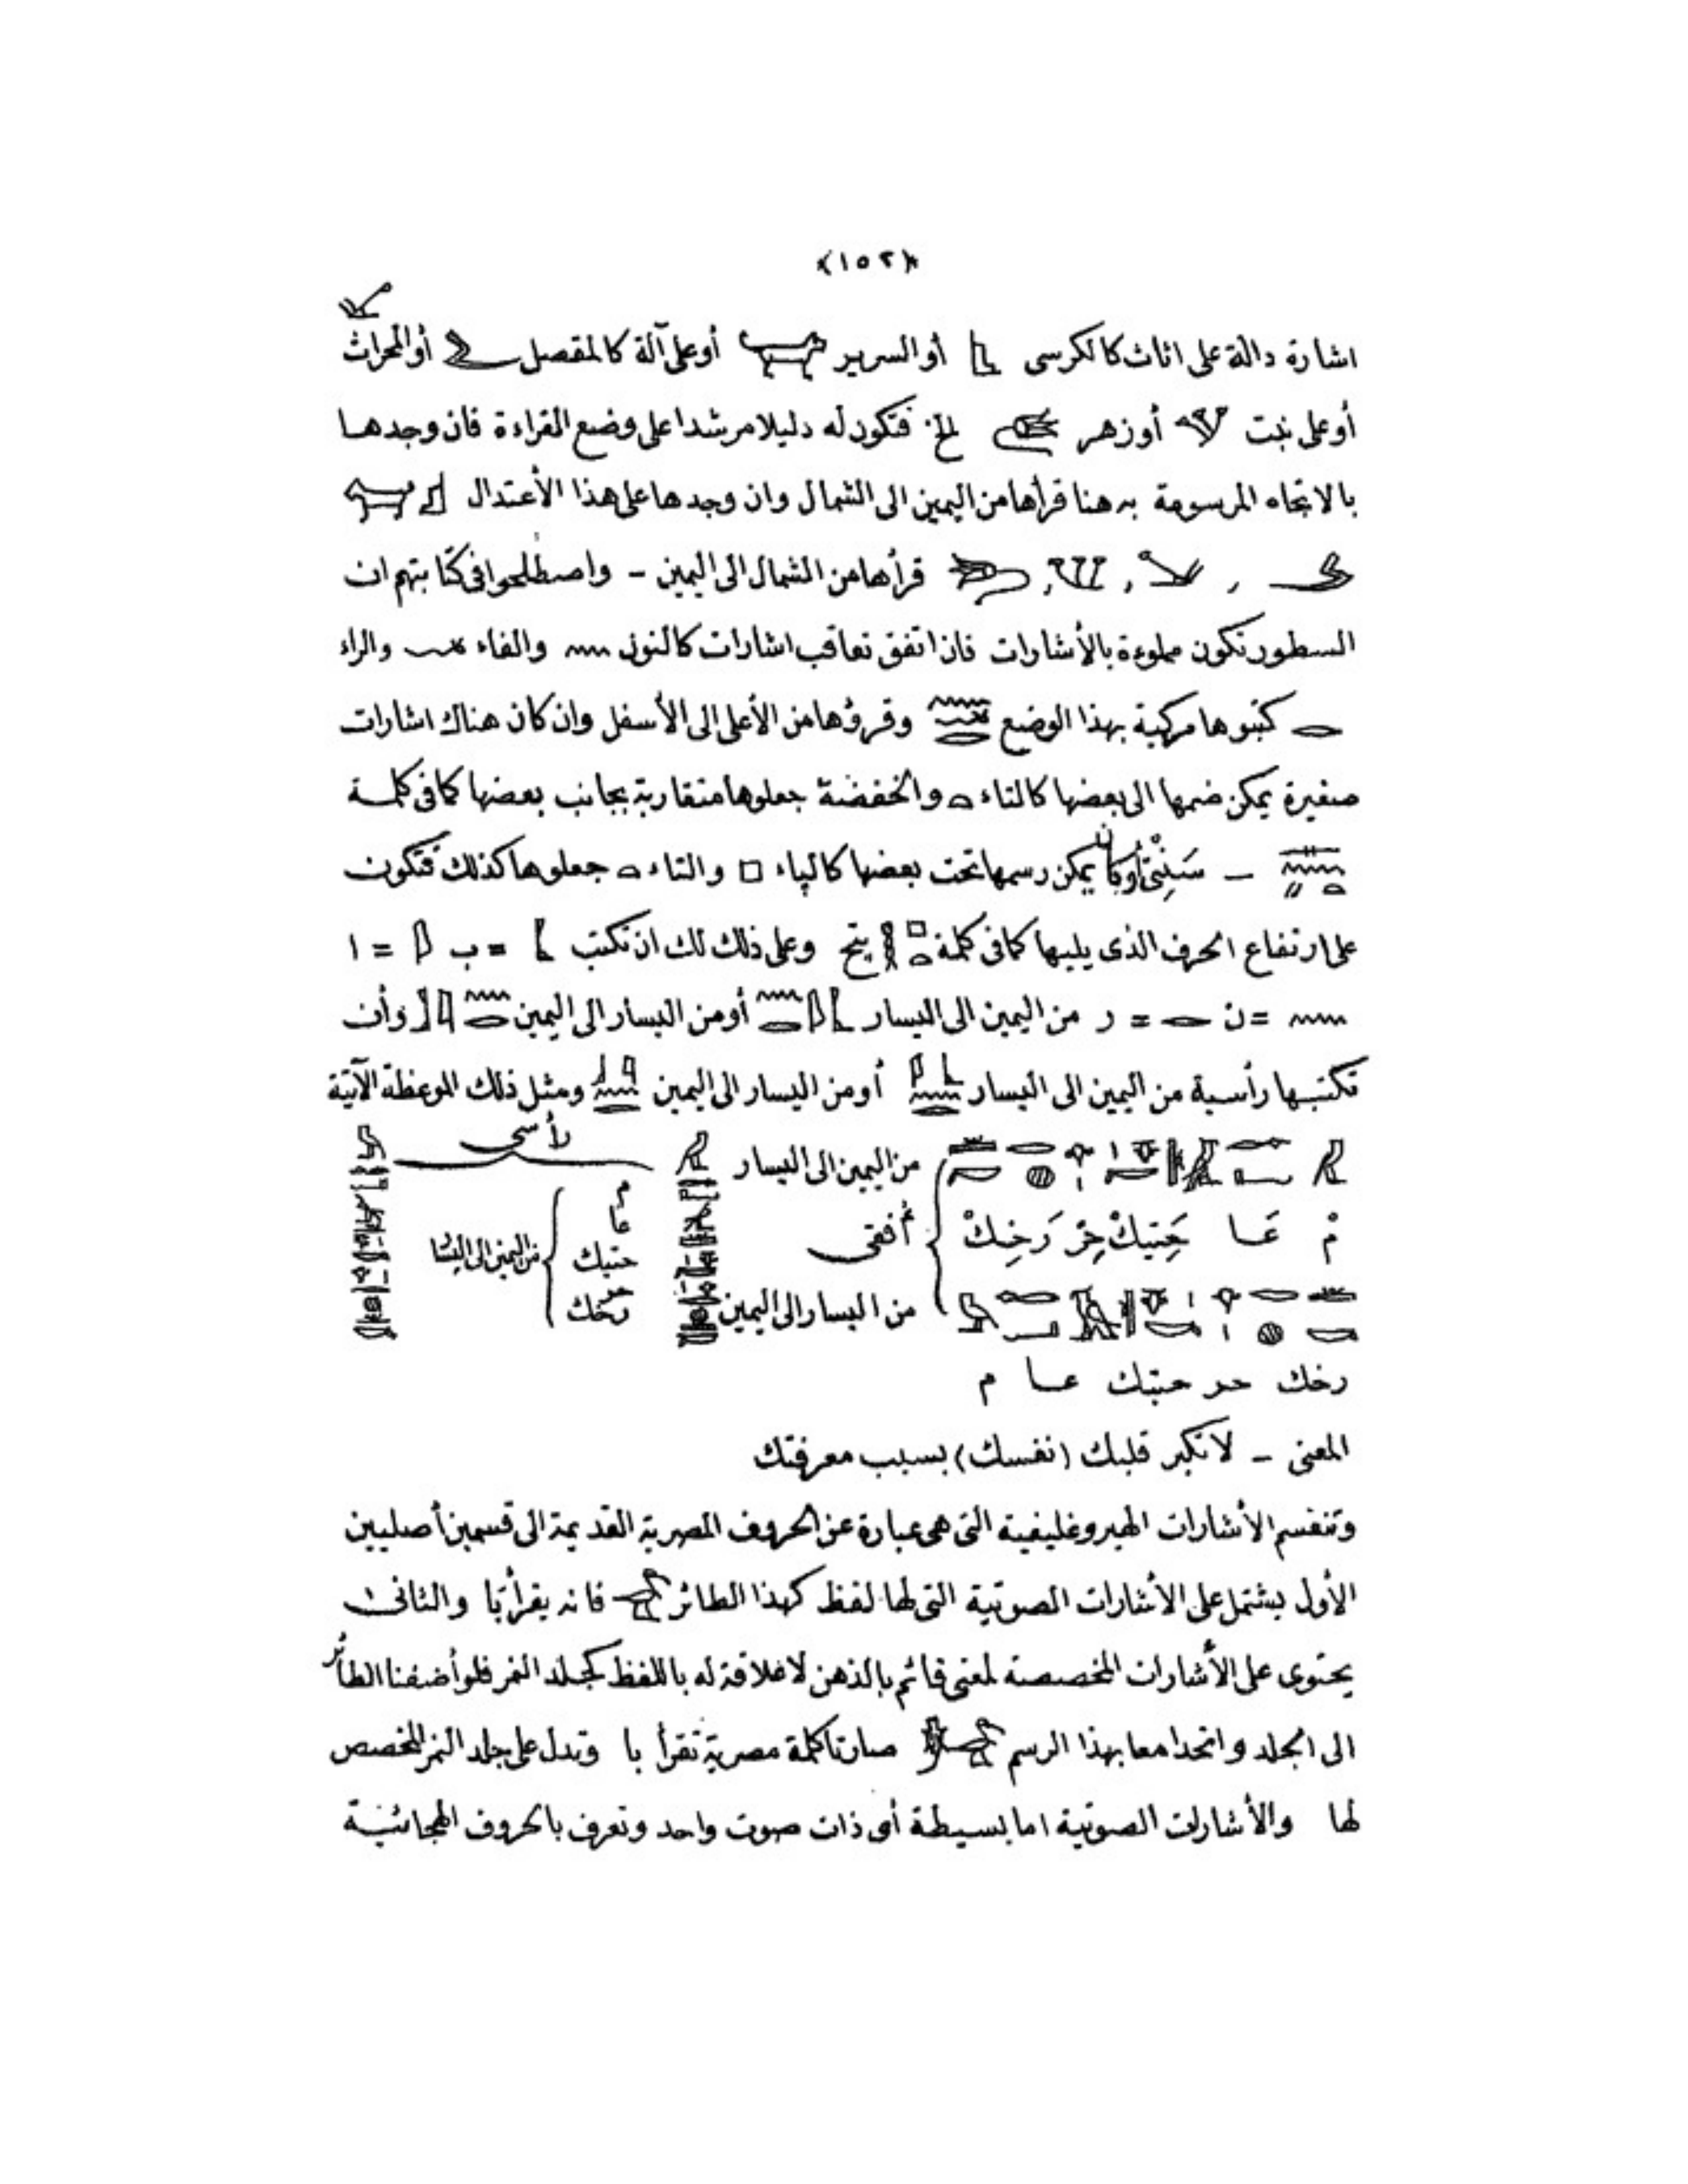 ﴿١٥٢﴾
اشارة دالة على اثاث كالكرسى أو السرير أو على آلة كالمقصل أو المحراث
أو على نبت أو زهر الخ فتكون له دليلا مرشدا على وضع القراءة فان وجدها
بالاتجاه المرسومة به هنا قرأها من اليمين الى الشمال وان وجدها على هذا الأعتدال
، ، ، قرأها من الشمال الى اليمين - واصطلحوا فى كتابتهم ان
السطور تكون مملوءة بالأشارات فان اتفق تعاقب اشارات كالنون والفاء والراء
كتبوها مركبة بهذا الوضع وقرؤها من الأعلى الى الأسفل وان كان هناك اشارات
صغيرة يمكن ضمها الى بعضها كالتاء والخفضة جعلوها متقاربة بجانب بعضها كما فى كلمة
- سَنِنْتِى أو كان يمكن رسمها تحت بعضها كالپاء والتاء جعلوها كذلك فتكون
على ارتفاع الحرف الذى يليها كما فى كلمة پتح وعلى ذلك لك ان تكتب = ب = ا
= ن = ر من اليمين الى اليسار أو من اليسار الى اليمين وأن
تكتبها رأسية من اليمين الى اليسار أو من اليسار الى اليمين ومثل ذلك الموعظة الآتية
من اليمين الى اليسار رأسى
مْ عَـا حَتيكْ حِرْ رَخِكْ أفقى م عا حتيك حر رخك من اليمين الى اليسار
من اليسار الى اليمين
رخك حر حتيك عـا م
المعنى - لا تكبر قلبك (نفسك) بسبب معرفتك
وتنقسم الأشارات الهيروغليفية التى هى عبارة عن الحروف المصرية القديمة الى قسمين أصليين
الأول يشتمل على الأشارات الصوتية التى لها لفظ كهذا الطائر فانه يقرأ با والثانى
يحتوى على الأشارات المخصصة لمعنى قائم بالذهن لا علاقة له باللفظ كجلد النمر فلو أضفنا الطائر
الى الجلد واتحدا معا بهذا الرسم صارتا كلمة مصرية تقرأ با وتدل على جلد النمر المخصص
لها والأشارات الصوتية اما بسيطة أى ذات صوت واحد وتعرف بالحروف الهجائية